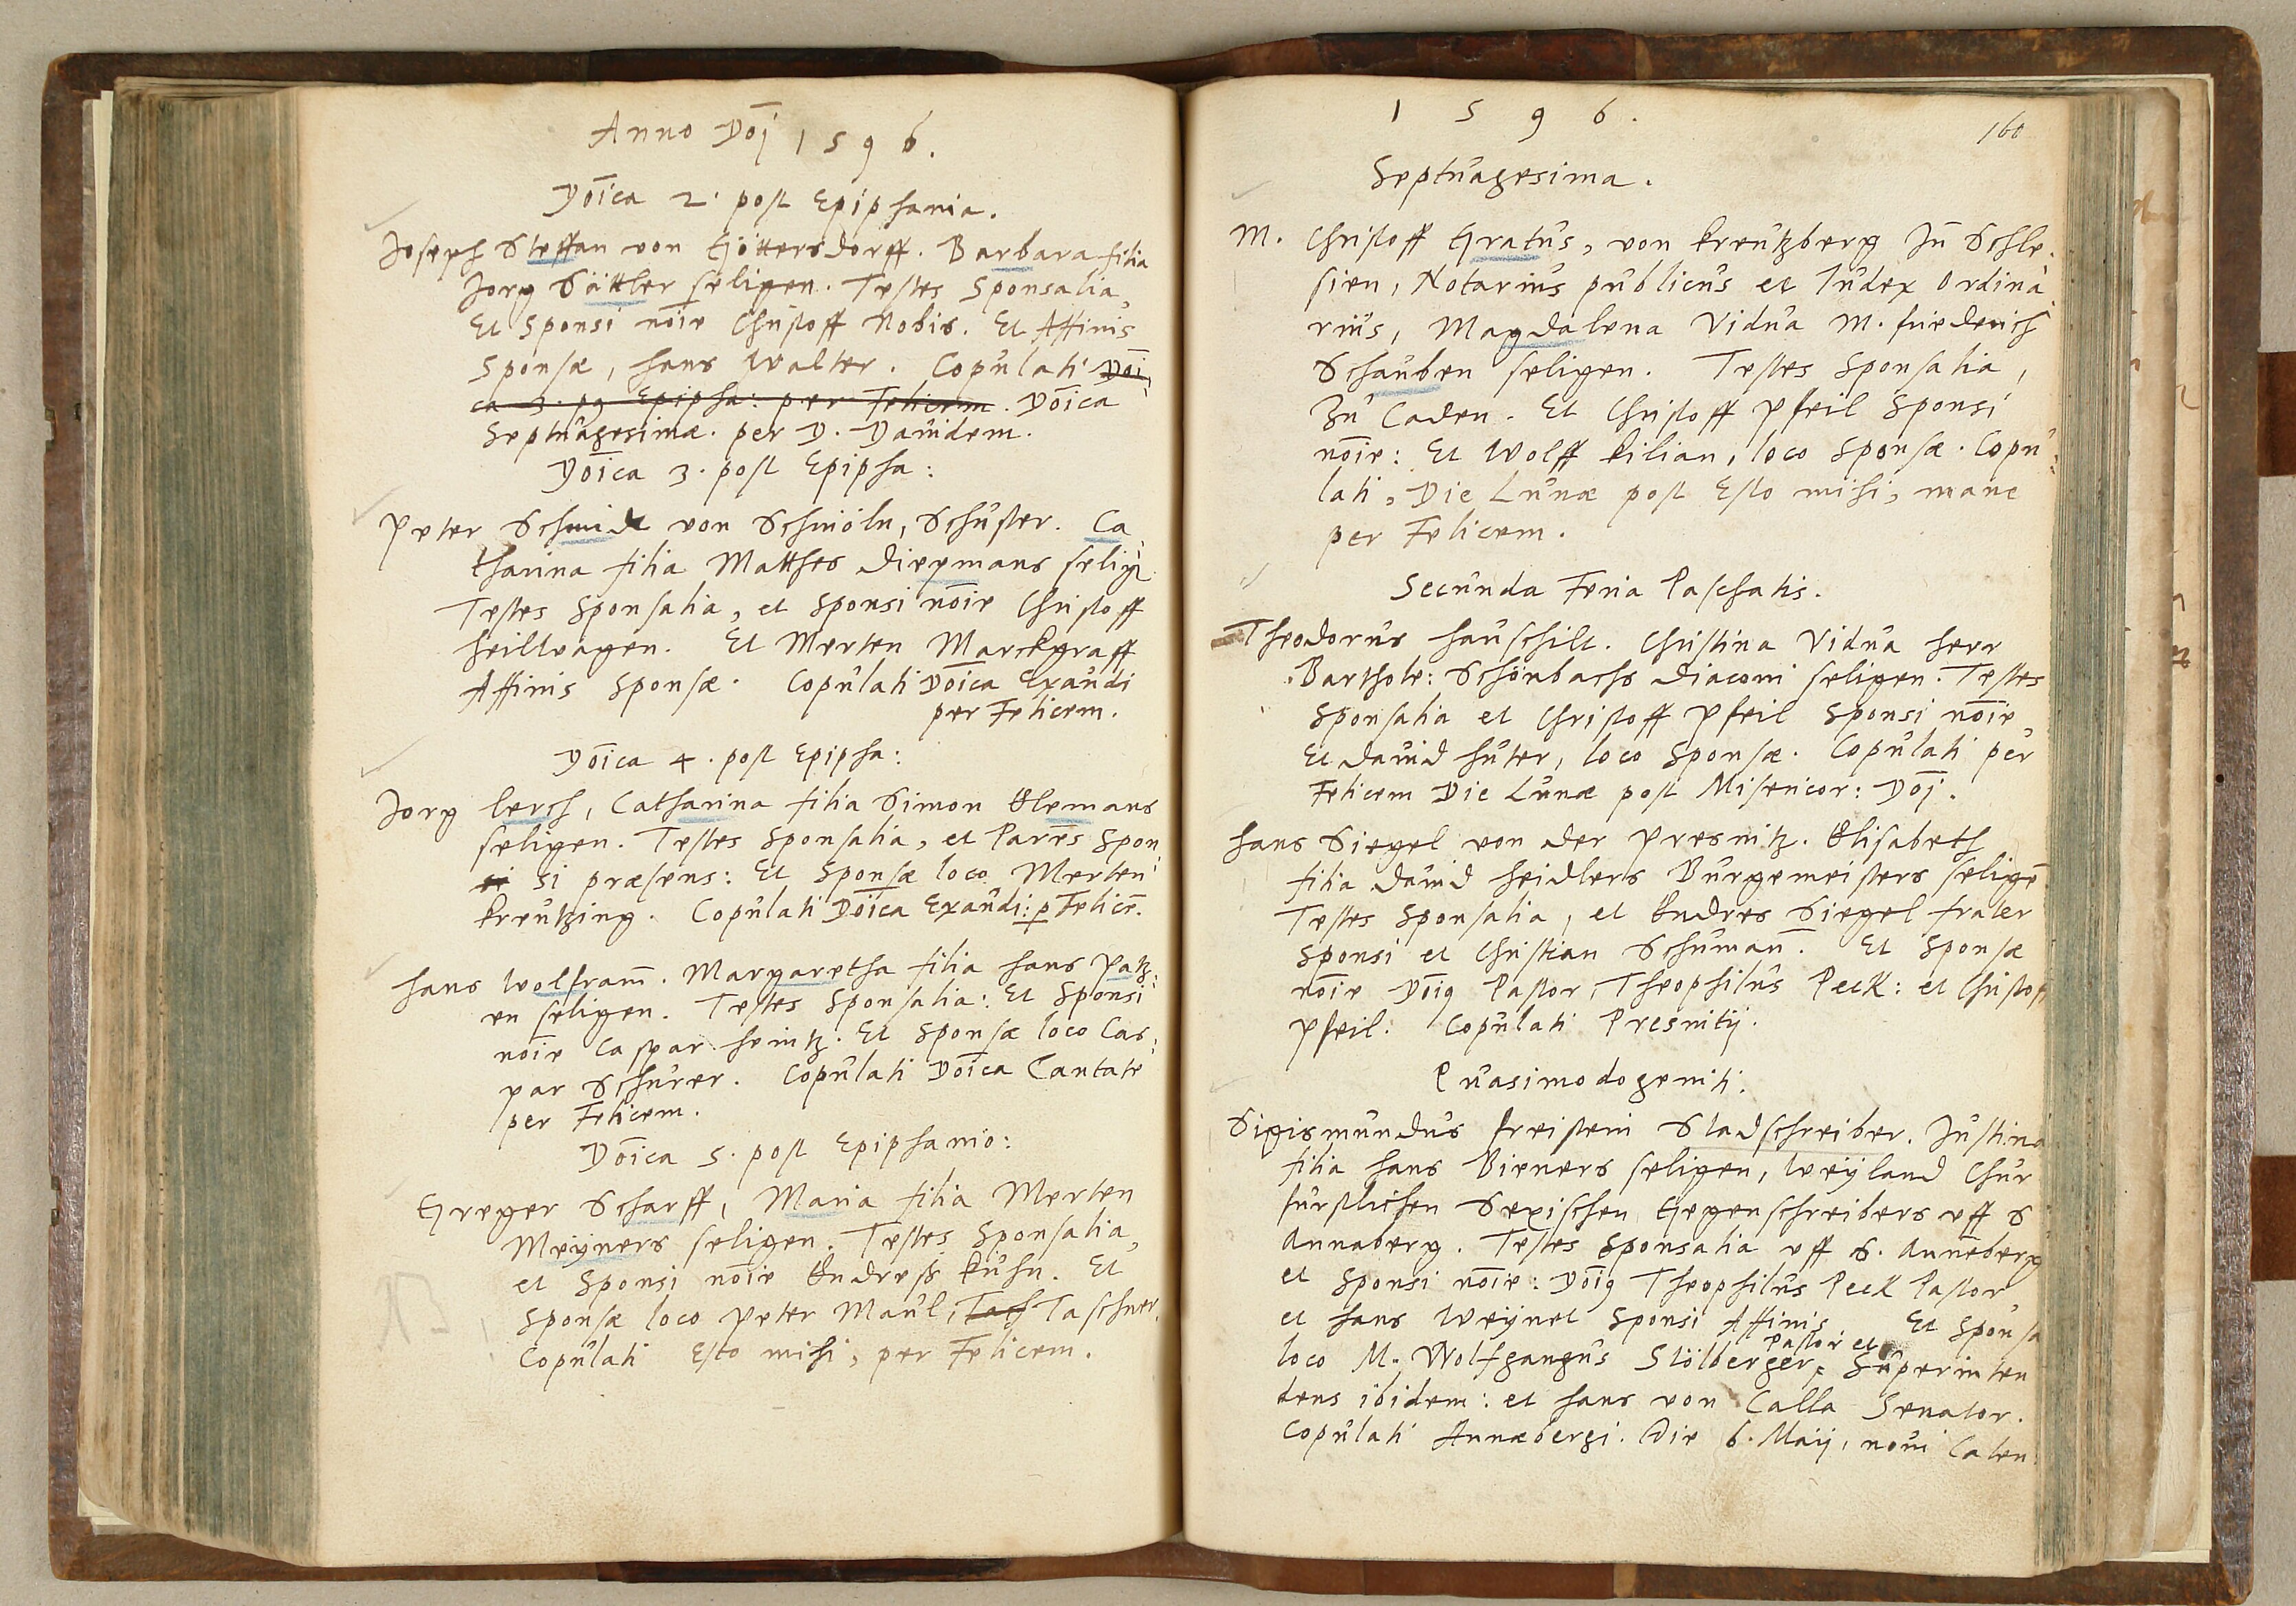 Anno Doj 1596.
Doica 2. post Epiphania.
Joseph Steffan von Göttersdorff. Barbara filia
Jorg Sättler seligen. Testes Sponsalia,
Et Sponsi noie Christoff Nobis. Et Affinis
Sponsæ, hans Walter. Copulati Doi,
ca 3. p9 Epipha: per Felicem. Doica
Septuagesimæ. per D. Dauidem.
Doica 3. post Epipha:
Peter Schmidt von Schmöln, Schuster. Ca
tharina filia Matthes Diegmans selig
Testes Sponsalia, et Sponsi noie Christoff
heilwagen. Et Merten Marckgraff
Affinis Sponsæ. Copulati Doica Exaudi
per Felicem.
Doica 4. post Epipha:
Jorg lerch, Catharina filia Simon Clemans
seligen. Testes Sponsalia, et Pares Spon
si si præsens: Et Sponsæ loco Merten
Kreutzing. Copulati Doica Exaudi: p Felice.
hans Wolfram. Margaretha filia hans Patz:
en seligen. Testes Sponsalia: Et Sponsi
noie Caspar heintz. Et Sponsæ loco Cas:
par Schürer. Copulati Doica Cantate
per Felicem.
Doica 5. post Epiphanio:
Greger Scharff, Maria filia Merten
Meÿners seligen. Testes Sponsalia,
et Sponsi noie Endreß Kuhn. Et
Sponsæ loco Peter Maul, Tasch Taschner.
Copulati Esto mihi, per Felicem.
1596.
160
Septuagesima.
M. Christoff Gratus, von Kreutzberg Jn Schle
sien, Notarius publicus et Iudex Ordina
rius, Magdalena Vidua M. friederich
Schauben seligen. Testes Sponsalia,
Zu Caden. Et Christoff Pfeil Sponsi
noie: Et Wolff Kilian, loco Sponsæ. Copu
lati, Die Lunæ post Esto mihi, mane
per Felicem.
Secunda Feria Paschatis.
Theodorus hauschilt. Christina Vidua herr
Barthole: Schönbachs Diaconi seligen. Testes
Sponsalia et Christoff Pfeil Sponsi noie
Et Dauid huter, loco Sponsæ. Copulati per
Felicem Die Lunæ post Misericor: Doj.
hans Siegel von der Presnitz. Elisabeth
filia Dauid heidlers Burgemeisters selige
Testes Sponsalia, et Endres Siegel frater
Sponsi et Christian Schuman. Et Sponsæ
noie Doi9 Pastor, Theophilus Peck: et Christoff
Pfeil. Copulati Presnitij.
Quasimodogeniti.
Sigismundus freistein Stadschreiber. Justina
filia hans Bieners seligen, weÿland Chur
fürstlichen Sexischen Gegenschreibers vff S
Annaberg. Testes Sponsalia vff S. Anneberg
et Sponsi noie: Doi9 Theophilus Peck Pastor
et hans Weÿnel Sponsi Affinis Et Sponsæ
loco M. Wolfgangus Stölberger, Pastor et Superinten
dens ibidem: et hans von Calla Senator.
Copulati Annæbergi. Die 6. Maij, noui Calen: